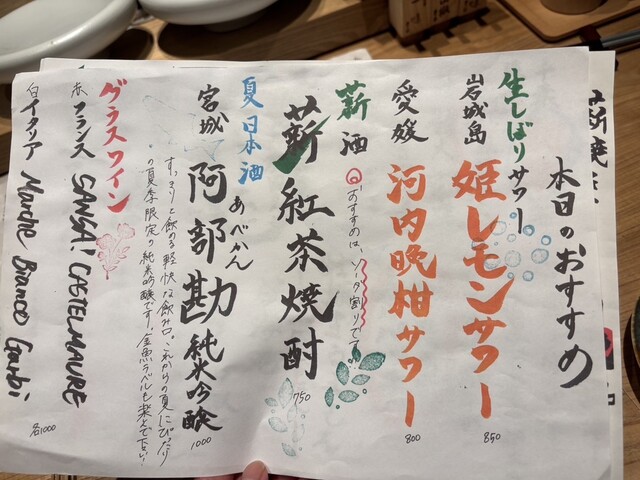 本日のおすすめ
生しぼりサワー
岩城島
姫レモンサワー
850
愛媛
河内晩柑サワー
800
薪酒
おすすめは、ソーダ割りです。
薪紅茶焼酎
750
夏日本酒
あべかん
宮城
阿部勘
純米吟醸
1000
すっきりと飲める軽快な飲み口。これからの夏にぴったり
の夏季限定の純米吟醸です。金魚ラベルも楽しんで下さい!
グラスワイン
赤 フランス SANSAI CASTELMAURE
白 イタリア Bianco
各1000